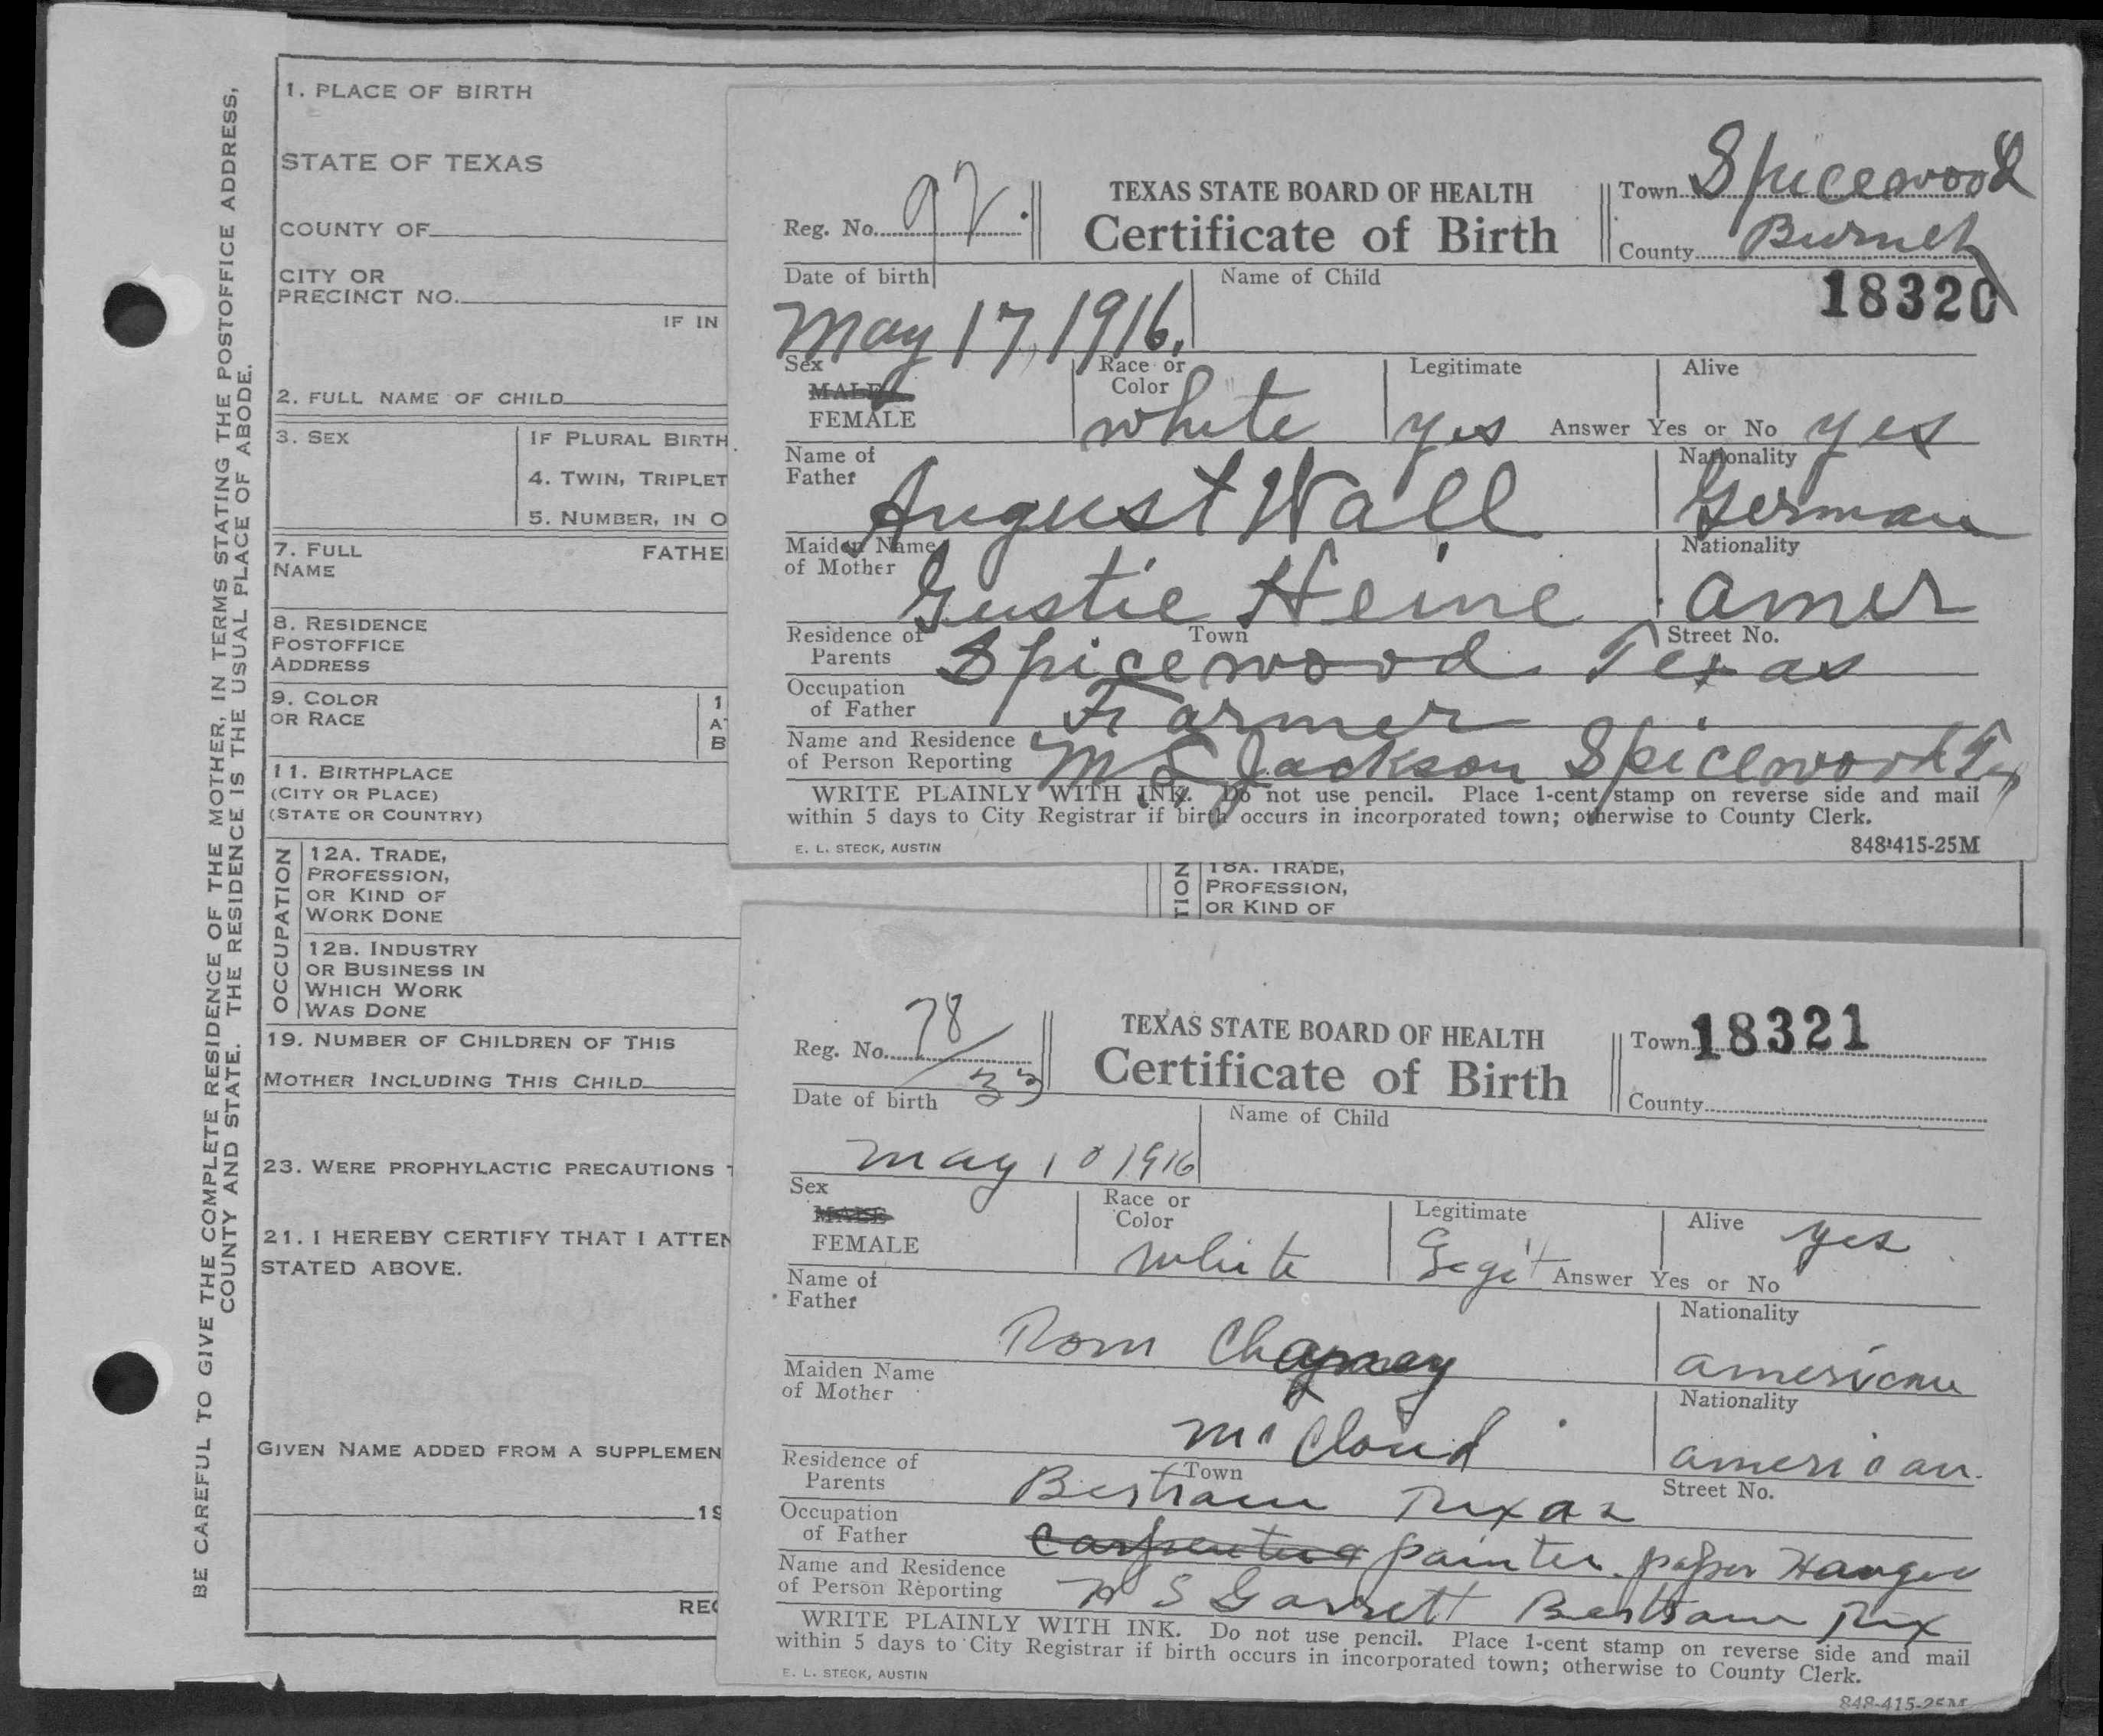 BE CAREFUL TO GIVE THE COMPLETE RESIDENCE OF THE MOTHER, IN TERMS STATING THE POSTOFFICE ADDRESS,
COUNTY AND STATE. THE RESIDENCE IS THE USUAL PLACE OF ABODE.
1. PLACE OF BIRTH
STATE OF TEXAS
COUNTY OF
CITY OR
PRECINCT NO.
IF IN
2. FULL NAME OF CHILD
3. SEX
IF PLURAL BIRTH
4. TWIN, TRIPLET
5. NUMBER, IN O
7. FULL
NAME
FATHE
8. RESIDENCE
POSTOFFICE
ADDRESS
9. COLOR
OR RACE
1
A
B
11. BIRTHPLACE
(CITY OR PLACE)
(STATE OR COUNTRY)
OCCUPATION
12A. TRADE,
PROFESSION,
OR KIND OF
WORK DONE
12B. INDUSTRY
OR BUSINESS IN
WHICH WORK
WAS DONE
19. NUMBER OF CHILDREN OF THIS
MOTHER INCLUDING THIS CHILD
23. WERE PROPHYLACTIC PRECAUTIONS
21. I HEREBY CERTIFY THAT I ATTEN
STATED ABOVE.
GIVEN NAME ADDED FROM A SUPPLEMEN
19
REG
Reg. No. 92.
TEXAS STATE BOARD OF HEALTH
Certificate of Birth
Town Spicewood
County Burnet
18320
Date of birth
Name of Child
May 17, 1916.
Sex
MALE
FEMALE
Race or
Color
white
Legitimate
yes
Alive
Answer Yes or No yes
Name of
Father
August Wall
Nationality
German
Maiden Name
of Mother
Gustie Heine
Nationality
amer
Residence of
Parents
Town
Street No.
Spicewood Texas
Occupation
of Father
Farmer
Name and Residence
of Person Reporting
M S Jackson Spicewood Tex
WRITE PLAINLY WITH INK. Do not use pencil. Place 1-cent stamp on reverse side and mail
within 5 days to City Registrar if birth occurs in incorporated town; otherwise to County Clerk.
E. L. STECK, AUSTIN
848-415-25M
TION
18A. TRADE,
PROFESSION,
OR KIND OF
Reg. No. 78
33
TEXAS STATE BOARD OF HEALTH
Certificate of Birth
Town 18321
County
Date of birth
Name of Child
May 10 1916
Sex
MALE
FEMALE
Race or
Color
white
Legitimate
Legit
Alive
yes
Answer Yes or No
Name of
Father
Rom
Nationality
american
Maiden Name
of Mother
McCloud
Nationality
american.
Residence of
Parents
Town
Street No.
Bertram Texas
Occupation
of Father
Carpenter painter paper Hanger
Name and Residence
of Person Reporting
S Garrett Bertram Tex
WRITE PLAINLY WITH INK. Do not use pencil. Place 1-cent stamp on reverse side and mail
within 5 days to City Registrar if birth occurs in incorporated town; otherwise to County Clerk.
E. L. STECK, AUSTIN
848-415-25M